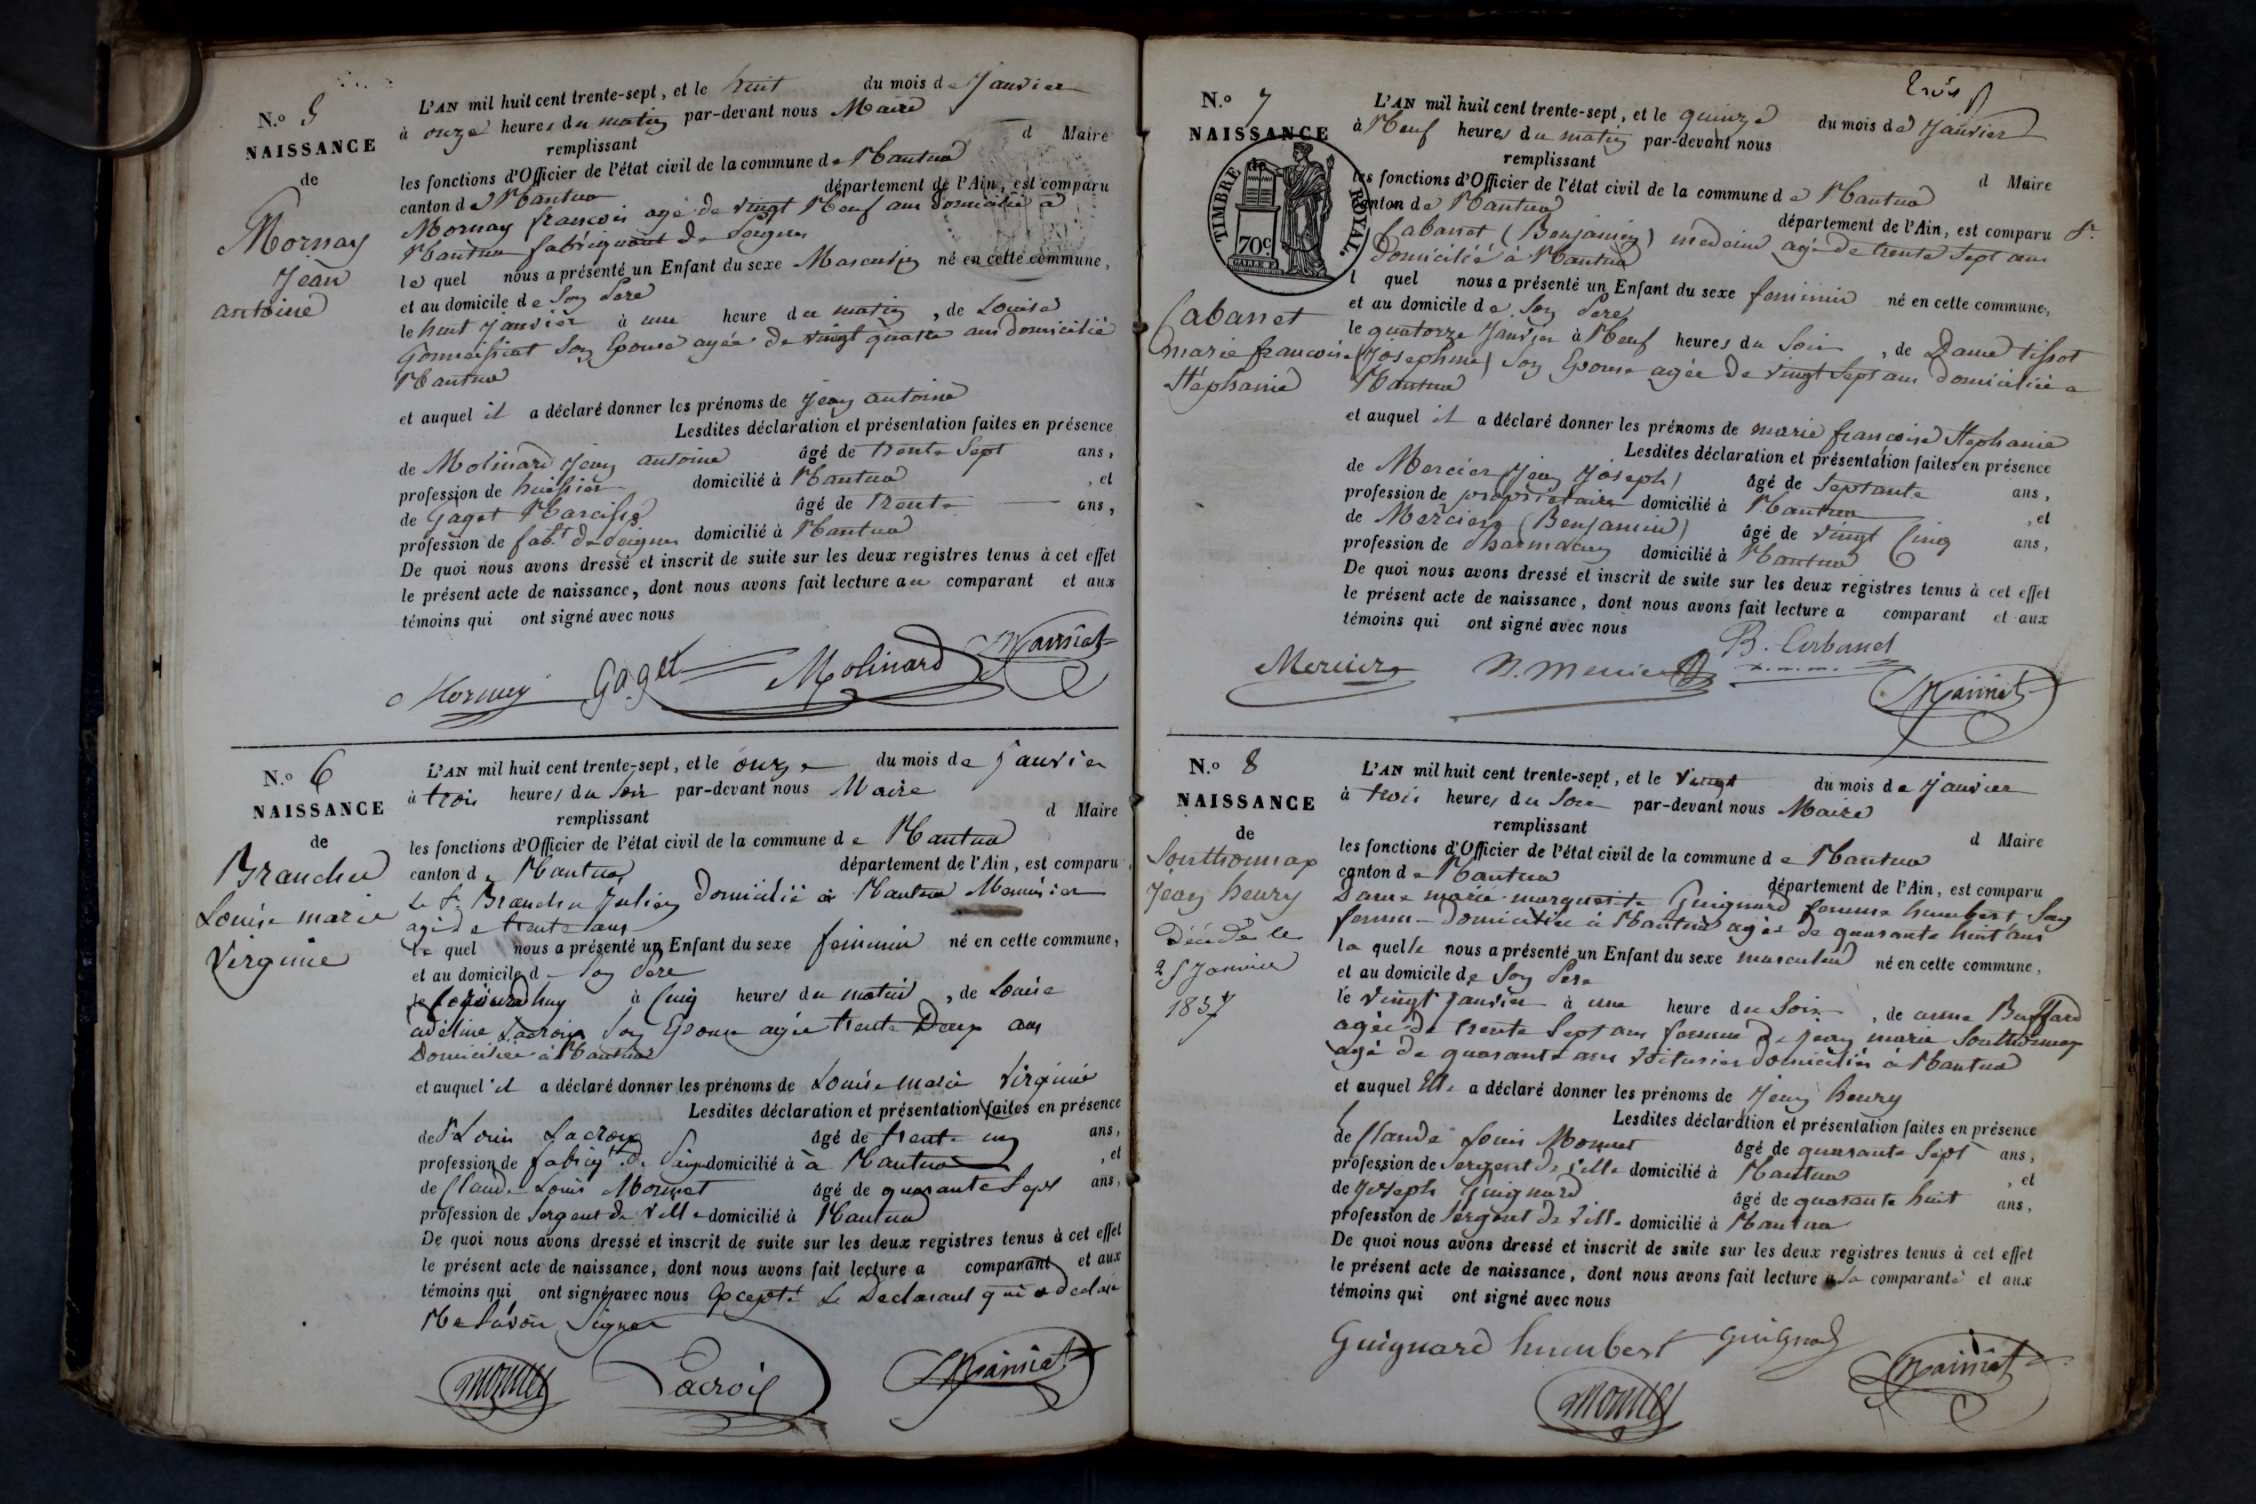 N.° 5
NAISSANCE
de
Mornay
Jean
antoine
L'AN mil huit cent trente-sept, et le huit du mois de Janvier
à onze heures du matin par-devant nous Maire
d Maire
remplissant
les fonctions d'Officier de l'état civil de la commune de Nantua
canton de Nantua département de l'Ain, est comparu
Mornay francois agé de vingt Neuf ans domicilié a
Nantua fabriquant de peignes
le quel nous a présenté un Enfant du sexe Masculin né en cette commune,
et au domicile de Son Pere
le huit Janvier à une heure du matin, de Louise
Gonneissiat Son Epouse agée de vingt quatre ans domicilié
Nantua
et auquel il a déclaré donner les prénoms de Jean antoine
Lesdites déclaration et présentation faites en présence
de Molinard Jean antoine âgé de trente Sept ans,
profession de huissier domicilié à Nantua, et
de Gaget Narcisse âgé de trente ans,
profession de fab.t de peignes domicilié à Nantua
De quoi nous avons dressé et inscrit de suite sur les deux registres tenus à cet effet
le présent acte de naissance, dont nous avons fait lecture au comparant et aux
témoins qui ont signé avec nous
Mornay Gaget Molinard
N.° 6
NAISSANCE
de
Branchu
Louise marie
Virginie
L'AN mil huit cent trente-sept, et le onze du mois de Janvier
à trois heures du Soir par-devant nous Maire
d Maire
remplissant
les fonctions d'Officier de l'état civil de la commune de Nantua
canton de Nantua département de l'Ain, est comparu
Le Sr. Branchu Julien domicilié à Nantua Menuisier
agé de trente ans
le quel nous a présenté un Enfant du sexe feminin né en cette commune,
et au domicile de Son Pere
aujourdhuy à Cinq heures du matin, de Louise
adéline Lacroix Son Epouse agée trente Deux ans
Domiciliée à Nantua
et auquel il a déclaré donner les prénoms de Louise marie Virginie
Lesdites déclaration et présentation faites en présence
de Sr Louis Lacroix âgé de trente un ans,
profession de domicilié à à Nantua, et
de Claude Louis Monnet âgé de quarante Sept ans,
profession de Sergent de Ville domicilié à Nantua
De quoi nous avons dressé et inscrit de suite sur les deux registres tenus à cet effet
le présent acte de naissance, dont nous avons fait lecture a comparant et aux
témoins qui ont signé avec nous Excepté Le Declarant qui a declaré
Ne Savoir Signer
Monnet Lacroix
trois
N.° 7
NAISSANCE
de
TIMBRE ROYAL.
70 c.
Cabanet
marie francoise
Stéphanie
L'AN mil huit cent trente-sept, et le quinze du mois de Janvier
à Neuf heures du matin par-devant nous
remplissant
d Maire
les fonctions d'Officier de l'état civil de la commune de Nantua
canton de Nantua département de l'Ain, est comparu Sr.
Cabanet (Benjamin) medecin agé de trente Sept ans
domicilié à Nantua
l quel nous a présenté un Enfant du sexe feminin né en cette commune,
et au domicile de Son Pere
le quatorze Janvier à Neuf heures du Soir, de Dame tissot
(Josephine) Son Epouse agée de vingt Sept ans domiciliée a
Nantua
et auquel il a déclaré donner les prénoms de marie francoise Stephanie
Lesdites déclaration et présentation faites en présence
de Mercier (Jean Joseph) âgé de Septante ans,
profession de propriétaire domicilié à Nantua, et
de Mercier (Benjamin) âgé de vingt Cinq ans,
profession de pharmacien domicilié à Nantua
De quoi nous avons dressé et inscrit de suite sur les deux registres tenus à cet effet
le présent acte de naissance, dont nous avons fait lecture a comparant et aux
témoins qui ont signé avec nous
Mercier B. Cabanet
N.° 8
NAISSANCE
de
Southonnax
Jean henry
Décédé le
25 Janvier
1837
L'AN mil huit cent trente-sept, et le vingt du mois de Janvier
à trois heures du Soir par-devant nous Maire
remplissant
d Maire
les fonctions d'Officier de l'état civil de la commune de Nantua
canton de Nantua département de l'Ain, est comparu
Dame marie marguerite Guignard femme humbert Sage
femme domiciliée à Nantua agée de quarante huit ans
la quelle nous a présenté un Enfant du sexe masculin né en cette commune,
et au domicile de Son Pere
le vingt Janvier à une heure du Soir, de anne Buffard
agée de trente Sept ans femme de jean marie Southonnax
agé de quarante ans voiturier domiciliés à Nantua
et auquel Elle a déclaré donner les prénoms de Jean henry
Lesdites déclaration et présentation faites en présence
de Claude Louis Monnet âgé de quarante Sept ans,
profession de Sergent de Ville domicilié à Nantua, et
de Joseph Guignard âgé de quarante huit ans,
profession de Sergent de Ville domicilié à Nantua
De quoi nous avons dressé et inscrit de suite sur les deux registres tenus à cet effet
le présent acte de naissance, dont nous avons fait lecture a la comparante et aux
témoins qui ont signé avec nous
Guignard humbert Guignard
Monnet